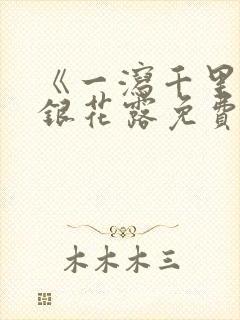 《一瀉千里
銀花露免費
木木木三